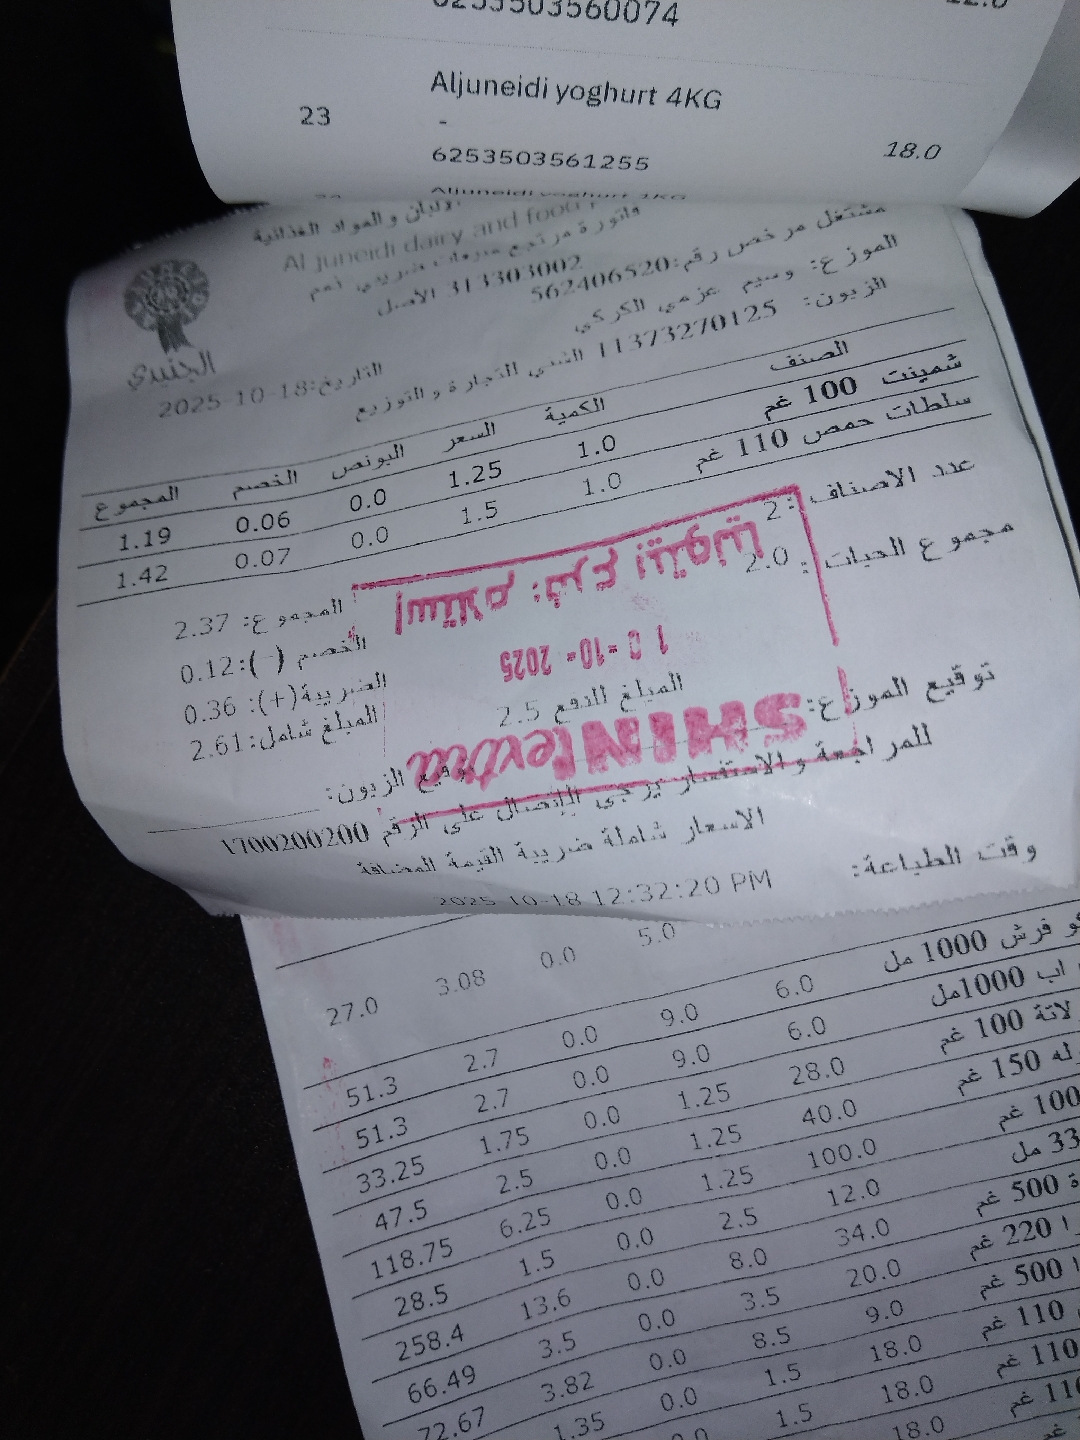 6253503560074
12.0
Aljuneidi yoghurt 4KG
23
-
18.0
6253503561255
Aljuneidi yoghurt 1KG
الالبان و المواد الغذائية
Al juneidi dairy and food
فاتورة مرتجع مبيعات ضريبي رقم
313303002 الأصل
مشتغل مرخص رقم:562406520
الموزع: وسيم عزمي الكركي
الزبون: 11373270125 الشني التجارة و التوزيع
الجنيدي
التاريخ:18-10-2025
الصنف الكمية السعر البونص الخصم المجموع
شمينت 100 غم 1.0 1.25 0.0 0.06 1.19
سلطات حمص 110 غم 1.0 1.5 0.0 0.07 1.42
عدد الاصناف :2
مجموع الحبات : 2.0
المجموع: 2.37
الخصم (-):0.12
الضريبة(+): 0.36
المبلغ شامل:2.61
المبلغ للدفع 2.5
إستلام: فرع بيتونيا
-10- 2025
SHINI extra
توقيع الموزع:
توقيع الزبون:
للمراجعة والاستفسار يرجى الإتصال على الرقم 1700200200
الاسعار شاملة ضريبة القيمة المضافة
وقت الطباعة:
2025-10-18 12:32:20 PM
5.0 0.0 3.08 27.0
فرش 1000 مل 6.0 9.0 0.0 2.7 51.3
اب 1000مل 6.0 9.0 0.0 2.7 51.3
لاتة 100 غم 28.0 1.25 0.0 1.75 33.25
له 150 غم 40.0 1.25 0.0 2.5 47.5
100 غم 100.0 1.25 0.0 6.25 118.75
مل 12.0 2.5 0.0 1.5 28.5
ة 500 غم 34.0 8.0 0.0 13.6 258.4
220 غم 20.0 3.5 0.0 3.5 66.49
500 غم 9.0 8.5 0.0 3.82 72.67
110 غم 18.0 1.5 0.0 1.35
110 غم 18.0 1.5 0.0
غم 18.0